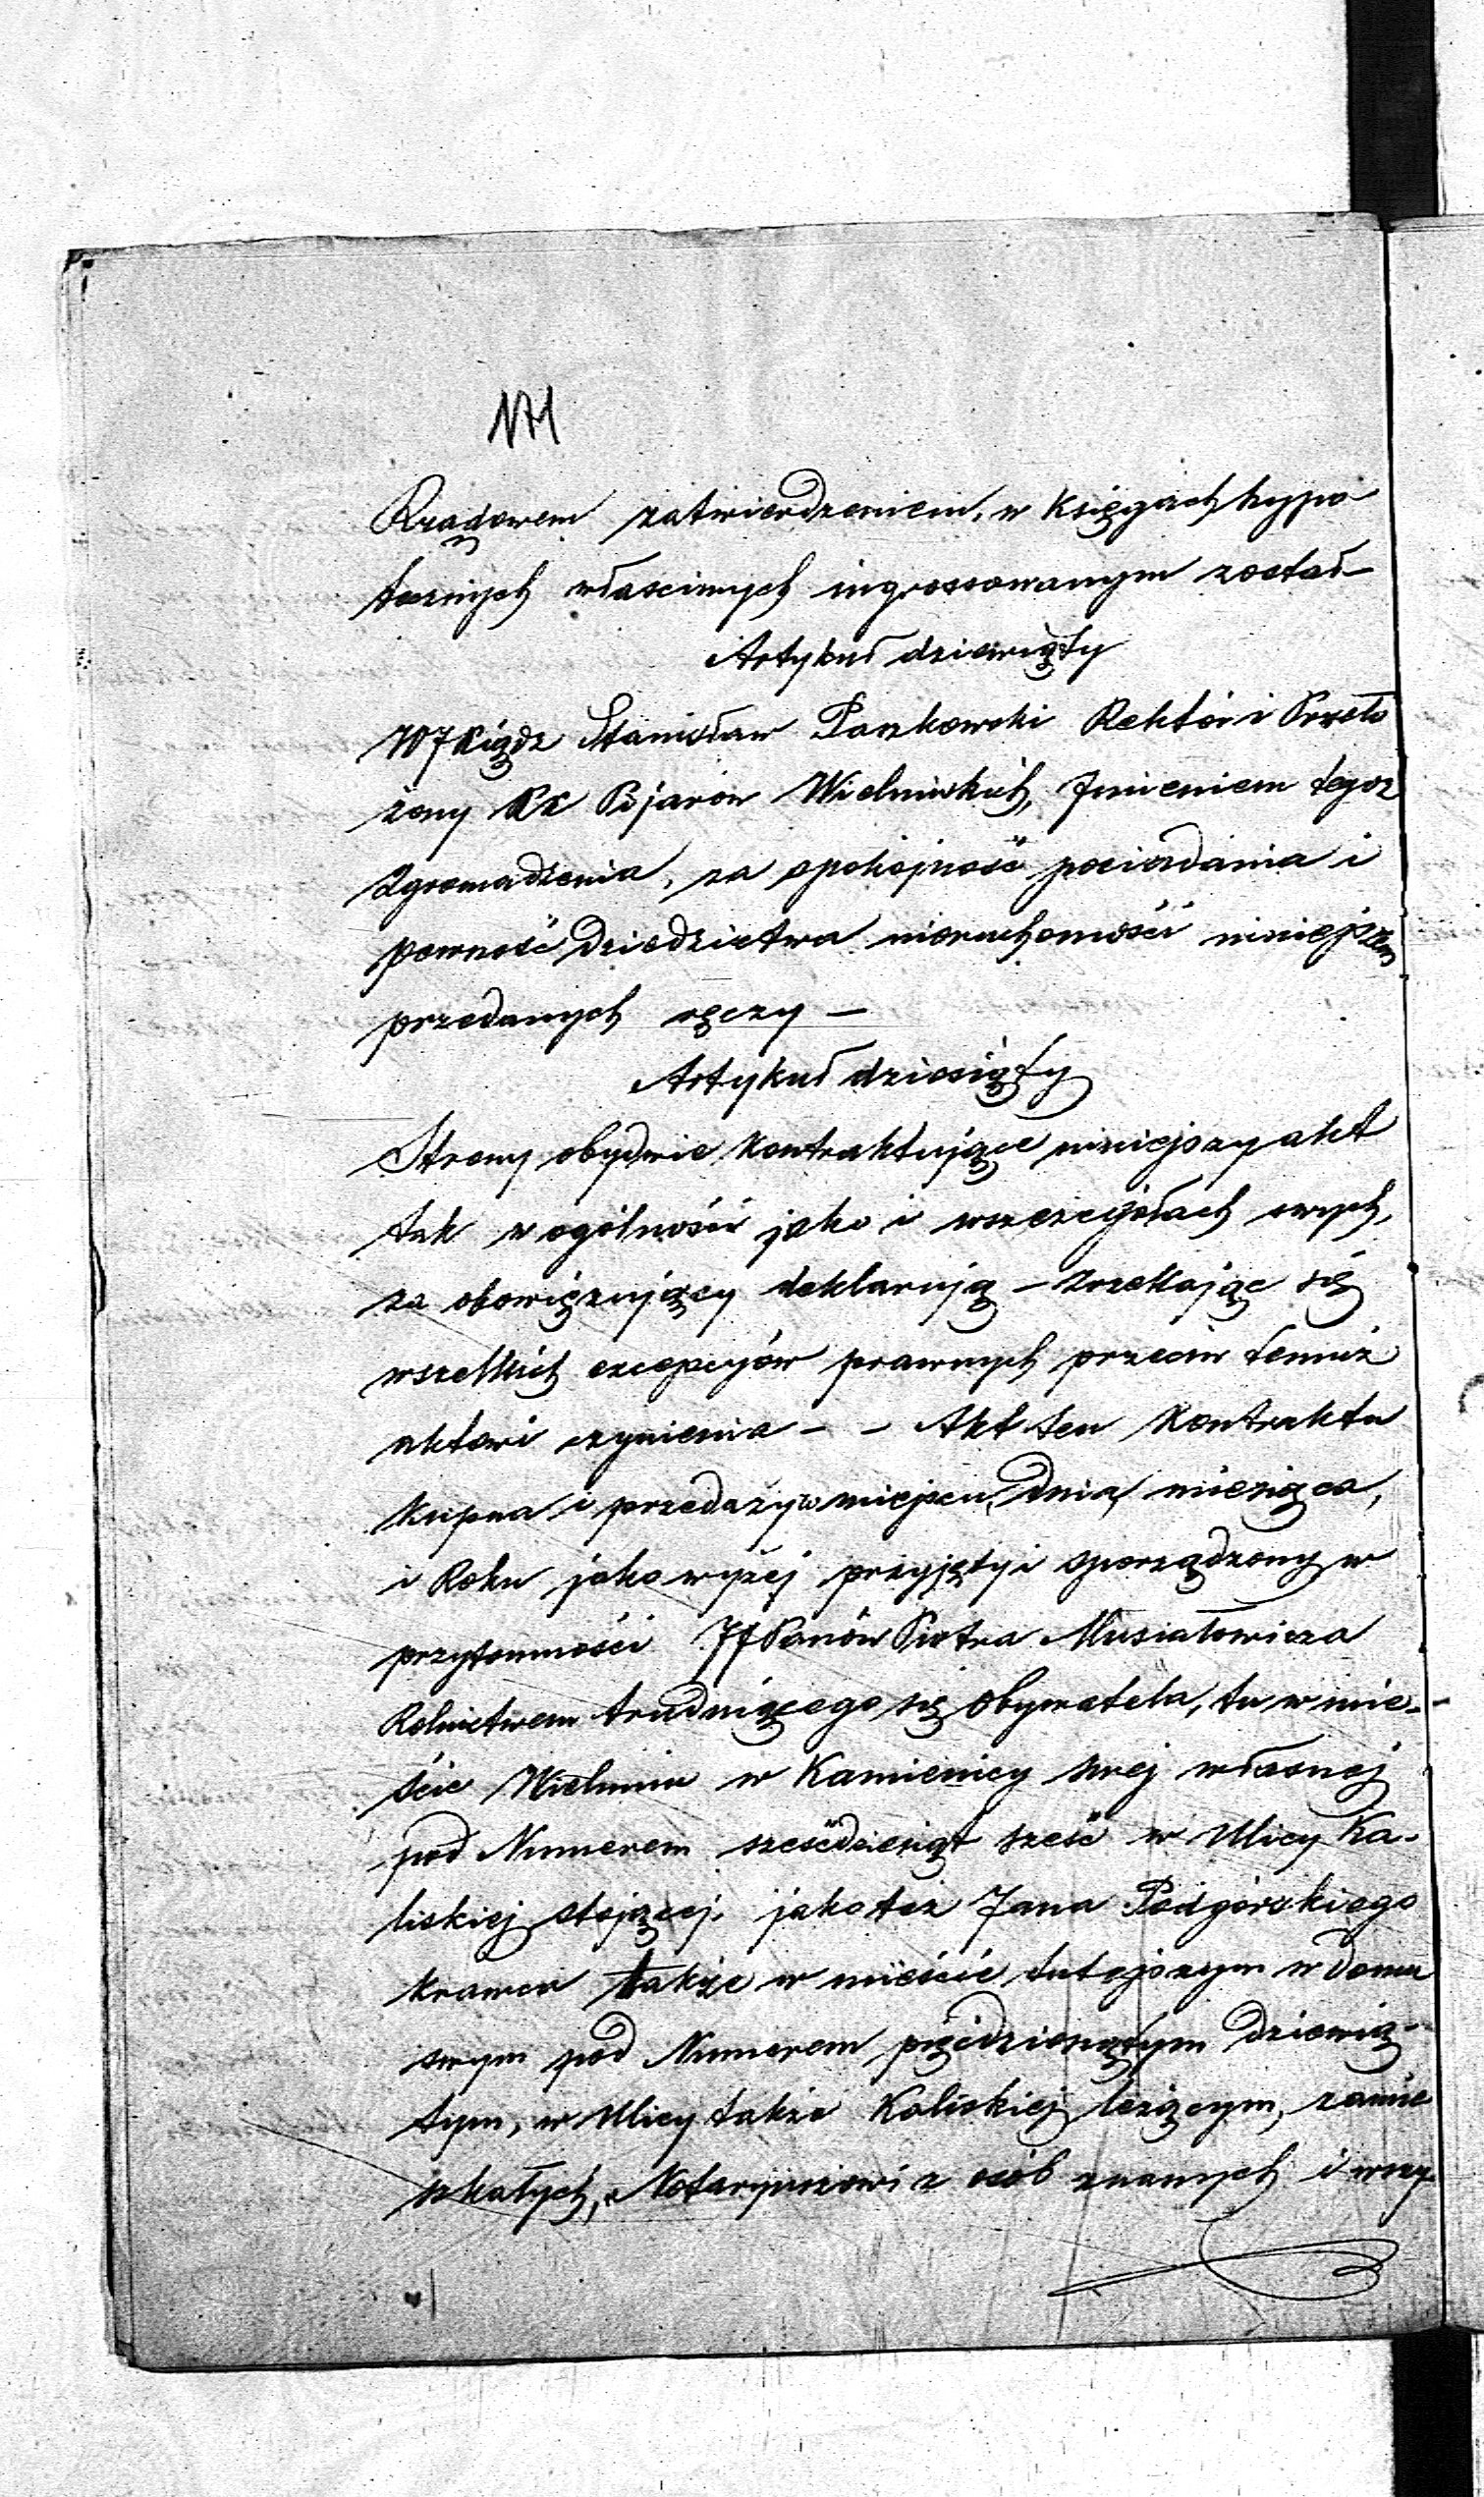 171
Rządowem zatwierdzeniem, w Księgach hypo-
tecznych właściwych ingrossowanym został—
Artykuł dziewiąty
Xiądz Stanisław Paszkowski Rektór i Przeło
żony XX Pijarów Wieluńskich, Imieniem tegoż
Zgromadzenia, za spokojność posiadania i
pewność Dziedzictwa nieruchomości niniejszem
przedanych ręczy —
Artykuł dziesiąty
Strony obydwie kontraktujące niniejszy akt
tak w ogólności jako i wszczegółach swych,
za obowięzujący deklarują — zrzekając się
wszelkich excepcyów prawnych przeciw temuż
aktowi czynienia — — Akt ten Kontraktu
Kupna i przedaży w miejscu, Dnia, miesiąca,
i Roku jako wyżej przyjęty i sporządzony w
przytomności JJPanów Piotra Musiałowicza
Rolnictwem trudniącego się Obywatela, tu w mie-
ście Wieluniu w Kamienicy swej własnej
pod Numerem sześćdziesiąt sześć w Ulicy Ka-
liskiej stojącej, jako też Jana Podgórskiego
krawca także w mieście tutejszym w Domu
swym pod Numerem pięćdziesiątym Dziewią-
tym, w Ulicy także Kaliskiej leżącym, zamie
szkałych, Notaryuszowi z osób znanych i wszy-